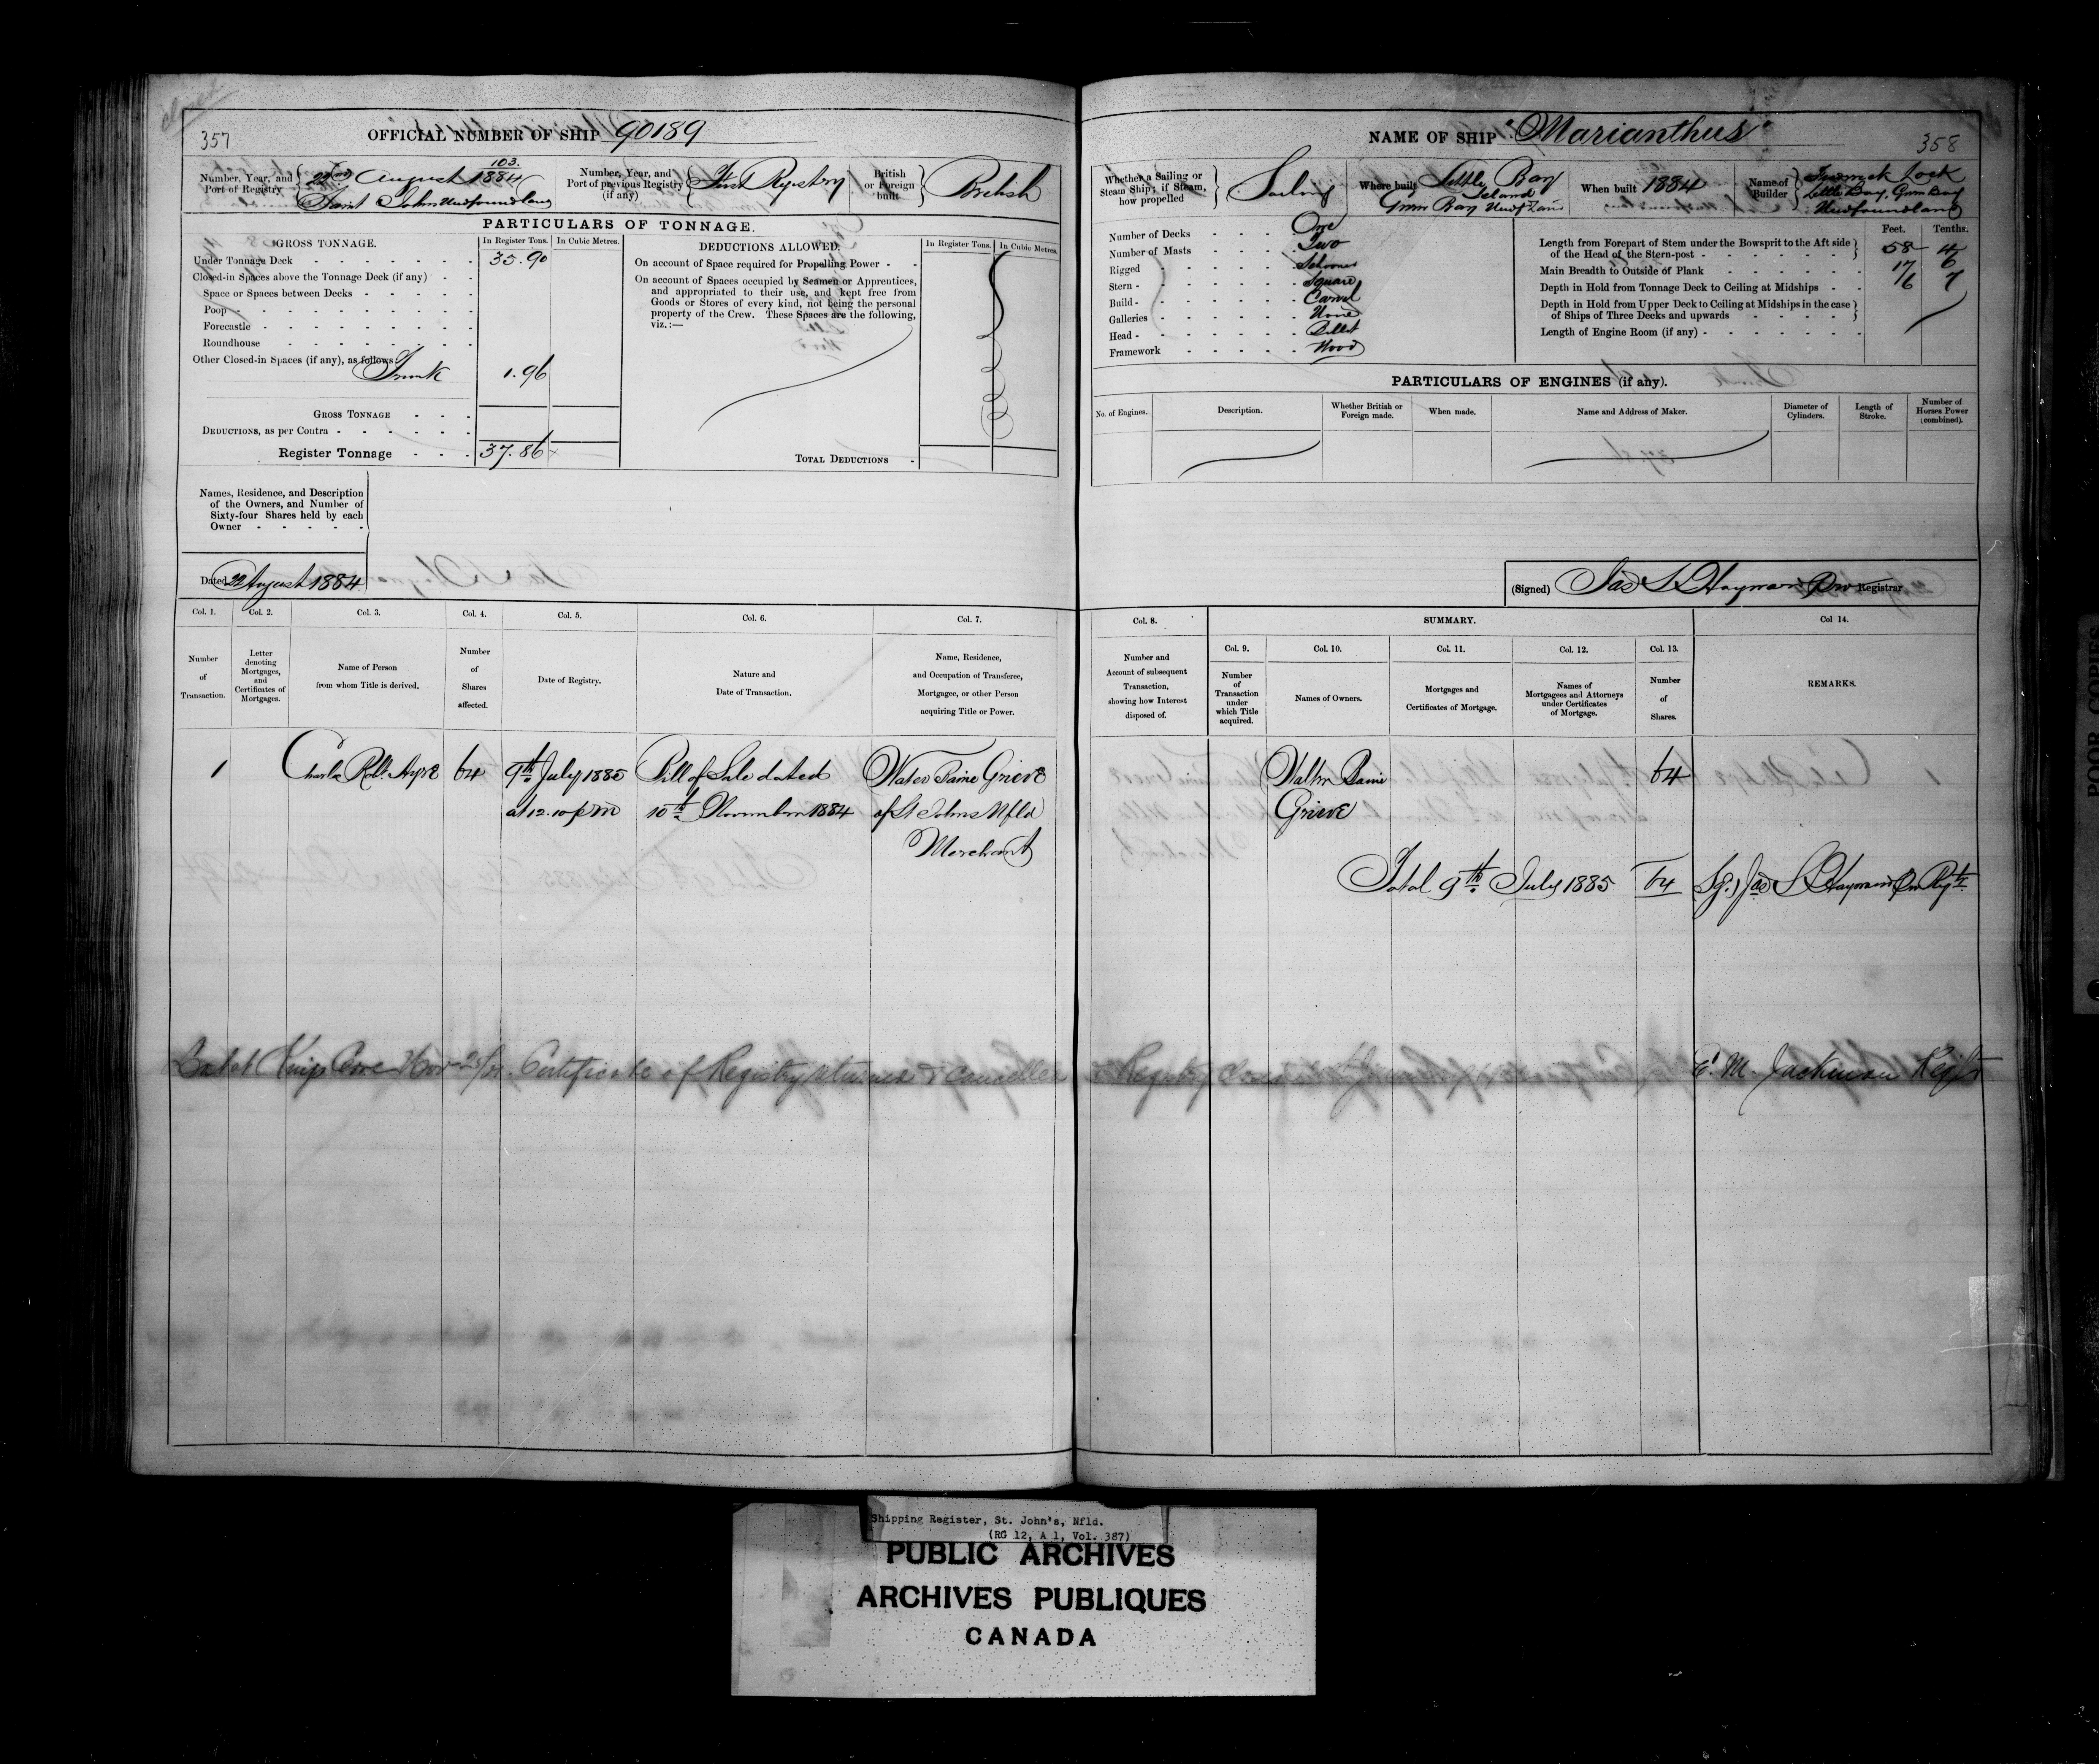 closed
357
OFFICIAL NUMBER OF SHIP 90189
Number, Year, and Port of Registry
103.
22nd August 1884
Saint Johns Newfoundland
Number, Year, and Port of previous Registry (if any)
First Registry
British or Foreign built
British
PARTICULARS OF TONNAGE.
GROSS TONNAGE. In Register Tons. In Cubic Metres.
Under Tonnage Deck 35.90
Closed-in Spaces above the Tonnage Deck (if any)
Space or Spaces between Decks
Poop
Forecastle
Roundhouse
Other Closed-in Spaces (if any), as follows
Trunk 1.96
GROSS TONNAGE
DEDUCTIONS, as per Contra
Register Tonnage 37.86
DEDUCTIONS ALLOWED. In Register Tons. In Cubic Metres.
On account of Space required for Propelling Power
On account of Spaces occupied by Seamen or Apprentices,
and appropriated to their use, and kept free from
Goods or Stores of every kind, not being the personal
property of the Crew. These Spaces are the following,
viz.:—
TOTAL DEDUCTIONS
Names, Residence, and Description
of the Owners, and Number of
Sixty-four Shares held by each
Owner
Dated 22 August 1884
Col. 1. Col. 2. Col. 3. Col. 4. Col. 5. Col. 6. Col. 7.
Number of Transaction.
Letter denoting Mortgages, and Certificates of Mortgages.
Name of Person from whom Title is derived.
Number of Shares affected.
Date of Registry.
Nature and Date of Transaction.
Name, Residence, and Occupation of Transferee, Mortgagee, or other Person acquiring Title or Power.
1 Charles Robt. Ayre 64 9th July 1885 Bill of Sale dated Walter Baine Grieve
at 12.10 pm 10th November 1884 of St Johns Nfld
Merchant
NAME OF SHIP "Marianthus"
358
Whether a Sailing or Steam Ship; if Steam, how propelled
Sailing
Where built
Little Bay
Island
Green Bay Newfland
When built 1884
Name of Builder
Lock
Little Bay, Green Bay
Newfoundland
Number of Decks One
Number of Masts Two
Rigged Schooner
Stern Square
Build Carvel
Galleries None
Head Billet
Framework Wood
Feet. Tenths.
Length from Forepart of Stem under the Bowsprit to the Aft side
of the Head of the Stern-post 58 4
Main Breadth to Outside of Plank 17 6
Depth in Hold from Tonnage Deck to Ceiling at Midships 7
Depth in Hold from Upper Deck to Ceiling at Midships in the case
of Ships of Three Decks and upwards
Length of Engine Room (if any)
PARTICULARS OF ENGINES (if any).
No. of Engines. Description. Whether British or Foreign made. When made. Name and Address of Maker. Diameter of Cylinders. Length of Stroke. Number of Horses Power (combined).
(Signed) Jas S Hayward Registrar
Col. 8. SUMMARY. Col 14.
Col. 9. Col. 10. Col. 11. Col. 12. Col. 13.
Number and Account of subsequent Transaction, showing how Interest disposed of.
Number of Transaction under which Title acquired.
Names of Owners.
Mortgages and Certificates of Mortgage.
Names of Mortgagees and Attorneys under Certificates of Mortgage.
Number of Shares.
REMARKS.
Walter Baine 64
Grieve
Total 9th July 1885 64 Sg.) Jas S Hayward
Lost at Kings Cove Nov Certificate of Registry returned & cancelled & Registry closed E. M. Jackman Regr
Shipping Register, St. John's, Nfld.
(RG 12, A 1, Vol. 387)
PUBLIC ARCHIVES
ARCHIVES PUBLIQUES
CANADA
POOR COPY